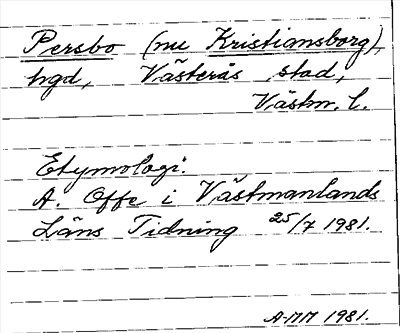 Persbo (nu Kristiansborg),
hgd, Västerås stad,
Västm. l.
Etymologi.
A. Offe i Västmanlands
Läns Tidning 25/7 1981.
1981.